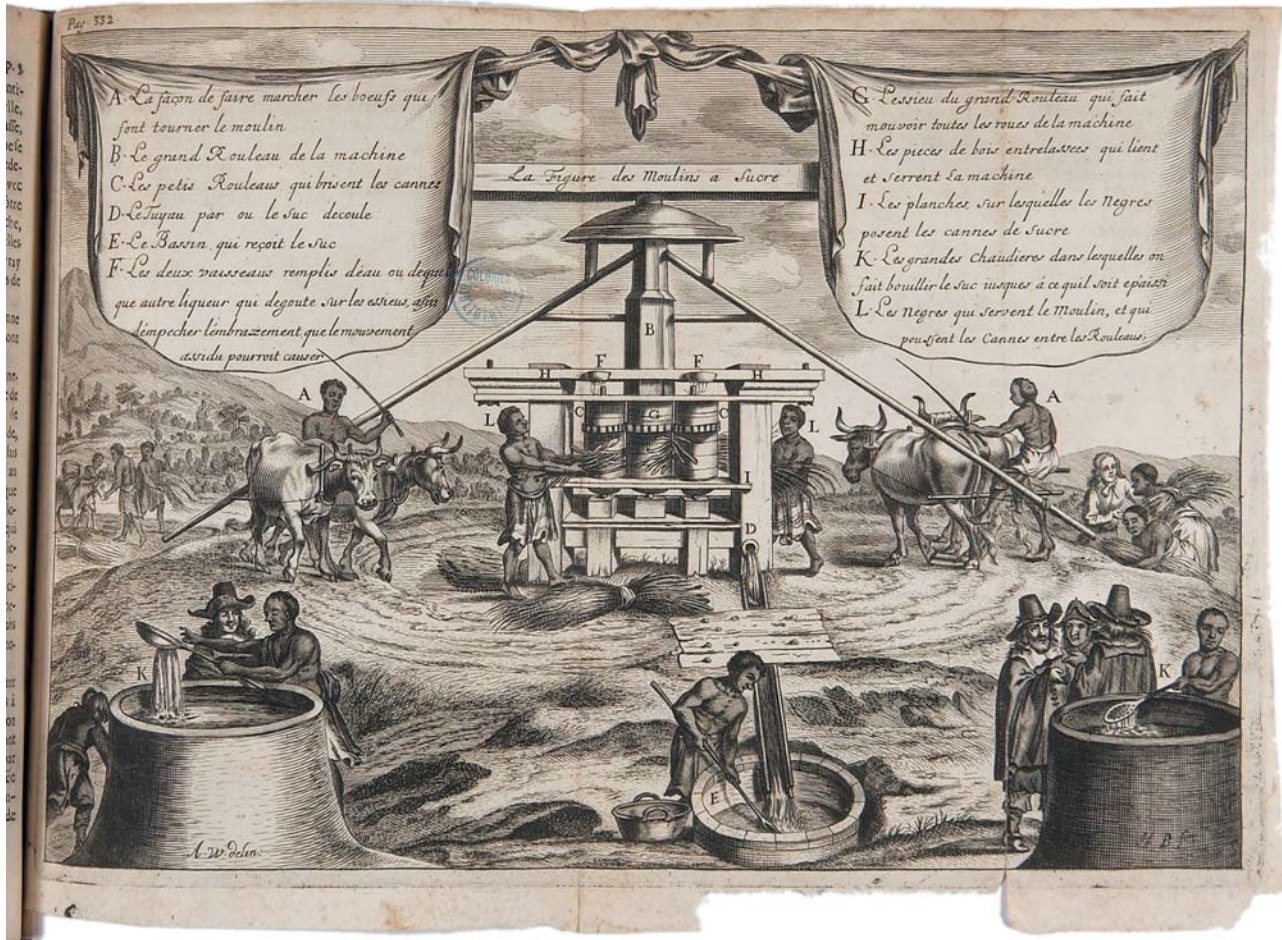 Pag. 332
A. La façon de faire marcher les boeufs qui
font tourner le moulin
B. Le grand Rouleau de la machine
C. Les petis Rouleaus qui brisent les cannes
D. Le Tuyau par ou le suc decoule
E. Le Bassin, qui reçoit le suc
F. Les deux vaisseaus remplis déau ou dequel
que autre liqueur qui degoute sur les essieus, afin
démpecher lémbrazement que le mouvement
assidu pourroit causer.
La Figure des Moulins a Sucre
G. Lessieu du grand Rouleau qui fait
mouvoir toutes les roues de la machine
H. Les pieces de bois entrelassees qui lient
et serrent la machine
I. Les planches, sur lesquelles les Negres
posent les cannes de sucre
K. Les grandes chaudieres dans lesquelles on
fait bouillir le suc iusques á ce quil soit epaissi
L. Les Negres qui servent le Moulin, et qui
poussent les Cannes entre les Rouleaus.
COLONIES
B
F F
H H
A A
C G C
L L
I
D
K K
E
A. W. delin.